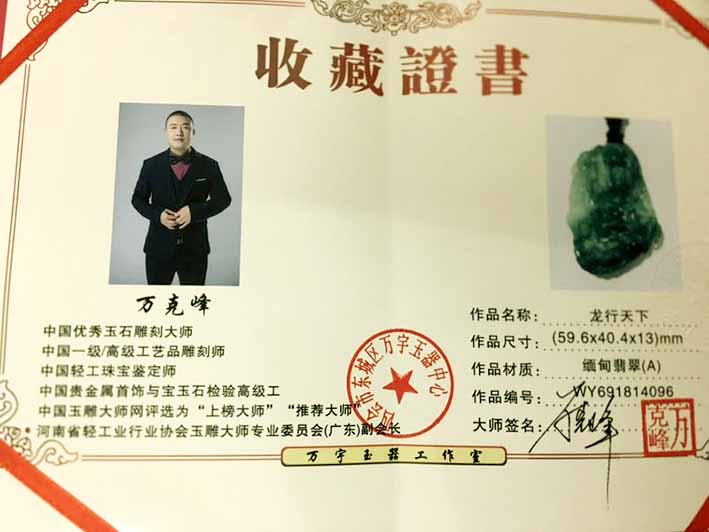 收藏證書
万克峰
中国优秀玉石雕刻大师
中国一级/高级工艺品雕刻师
中国轻工珠宝鉴定师
中国贵金属首饰与宝玉石检验高级工
中国玉雕大师网评选为“上榜大师”“推荐大师”
*河南省轻工业行业协会玉雕大师专业委员会(广东)副会长
四会市东城区万宇玉器中心
作品名称: 龙行天下
作品尺寸: (59.6x40.4x13)mm
作品材质: 缅甸翡翠(A)
作品编号: WY691814096
大师签名: 万克峰
万克峰
万宇玉器工作室